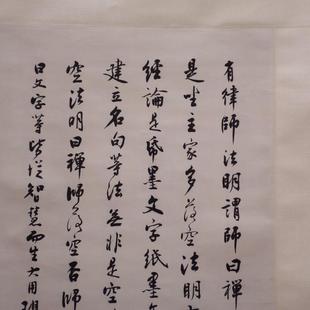 有律師法明謂師曰禪
是坐主家多落空法明
經論是帋墨文字紙墨
建立名句等法無非是空
空法明曰禪師落空否師
曰文字等皆從智慧而生大用現